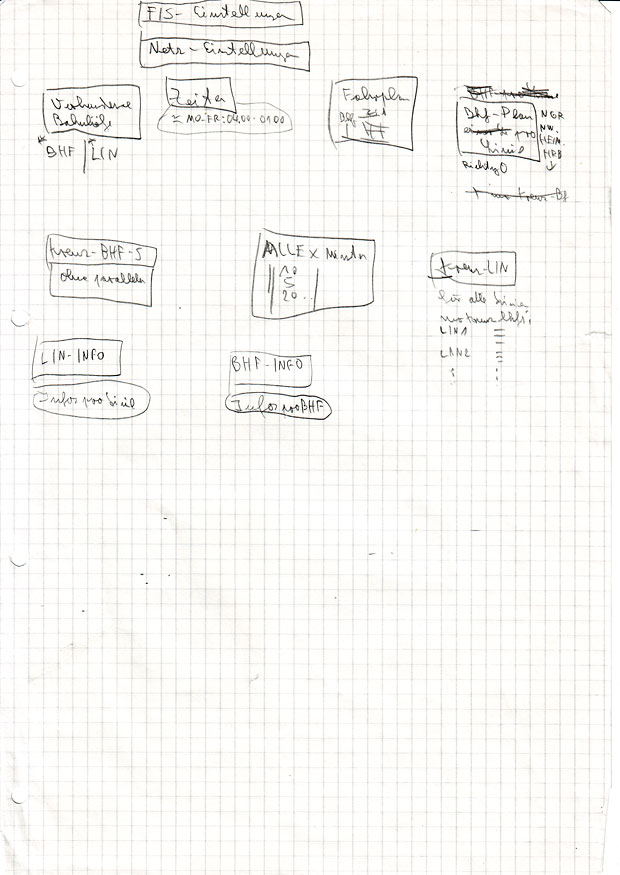 FIS-Einstellungen
Netz-Einstellungen
Vorhandene
Bahnhöfe
BHF | LIN
Zeiten
MO-FR: 04.00-01.00
Fahrplan
Bhf-Plan
pro
Linie
NGR
NW.
HEIM.
HRB
Richtg
Kreuz-BHF-S
ohne parallele
ALLE X Minuten
10
5
20...
Kreuz-LIN
für alle Linien
LIN1
LIN2
LIN-INFO
Infos pro Linie
BHF-INFO
Infos pro BHF